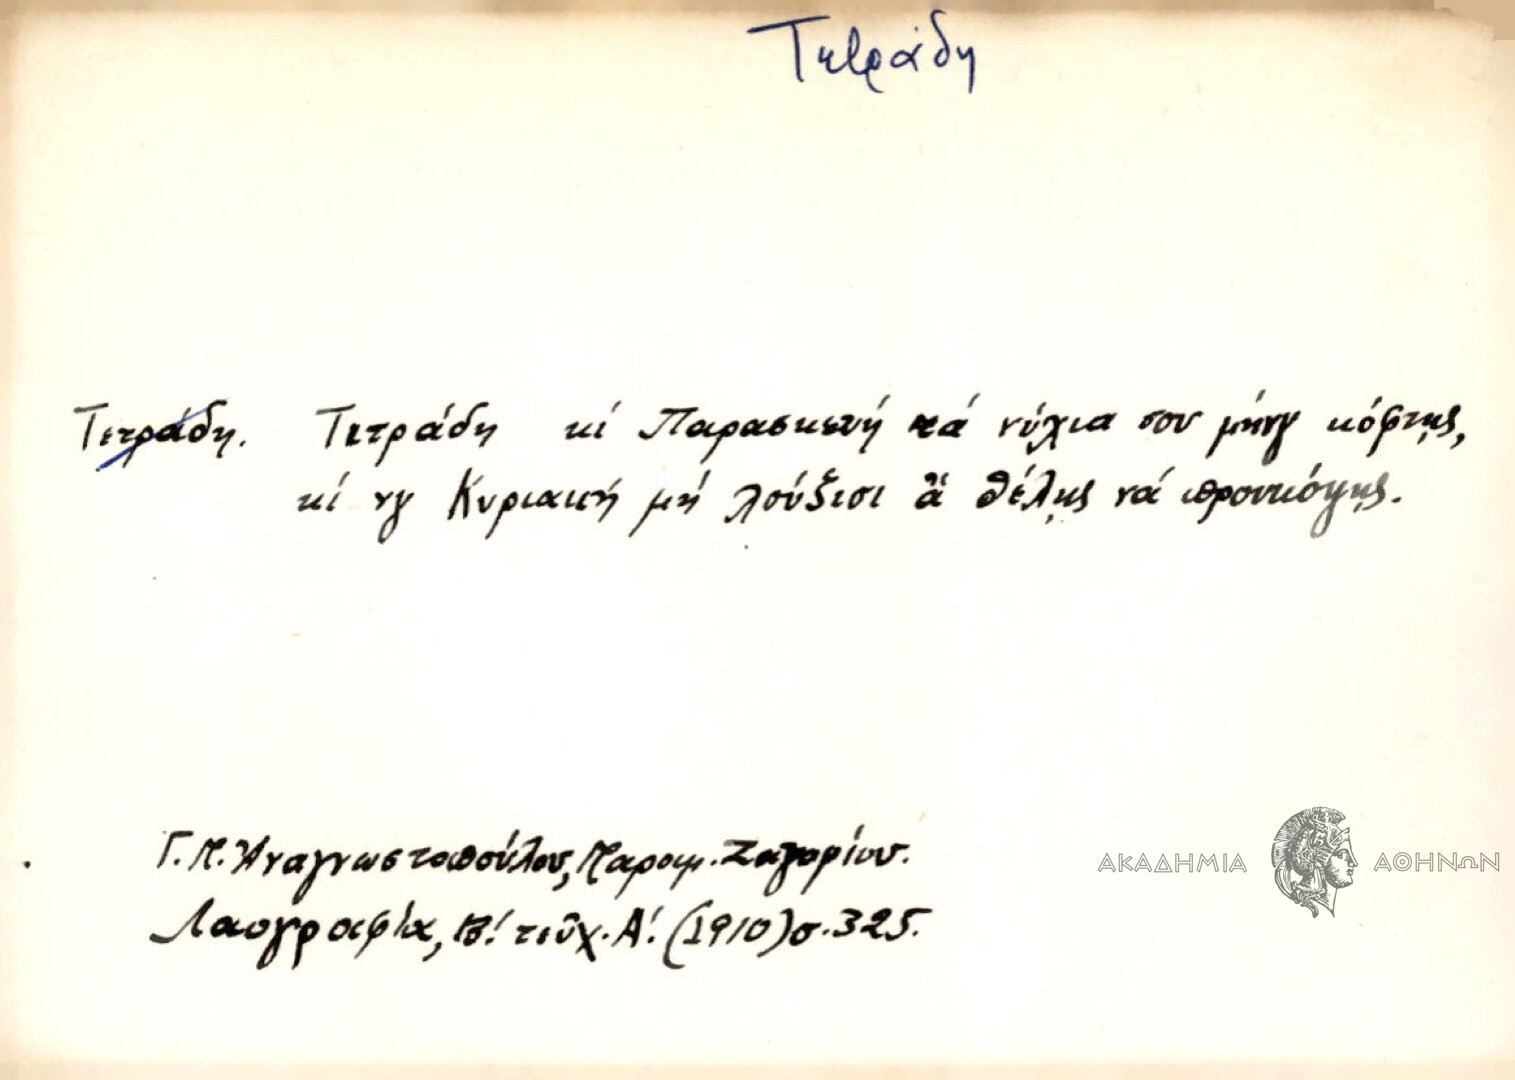 Τετράδη
Τετράδη. Τετράδη κί Παρασκευή τά νύχια σου μήνγ κόφτῃς,
κί νγ Κυριακή μή λούζισι ἄ θέλῃς νά προυκόψῃς.
Γ. Π. Ἀναγνωστοπούλου, Παροιμ. Ζαγορίου.
Λαογραφία, Β! τεῦχ. Α! (1910) σ. 325.
ΑΚΑΔΗΜΙΑ ΑΘΗΝΩΝ